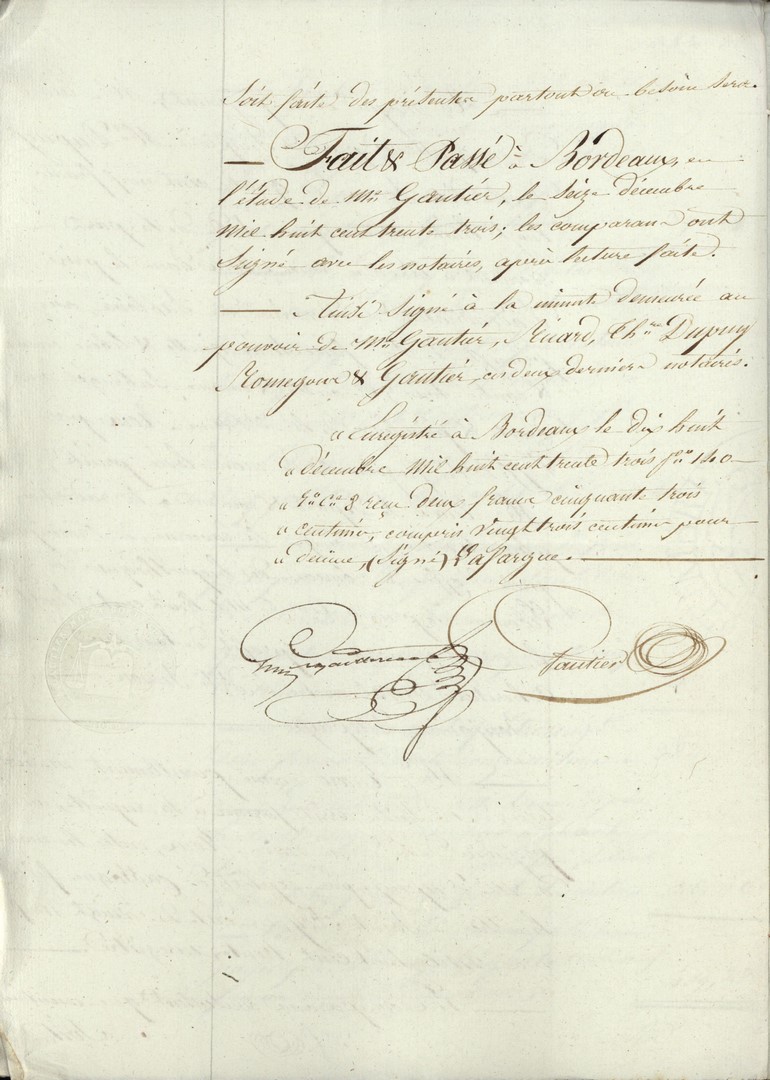 soit faite des présentes partout ou besoin sera.
— Fait & Passé à Bordeaux, en
l'étude de Mᵉ Gautier, le seize décembre
mil huit cent trente trois; les comparans ont
signé avec les notaires, après lecture faite.
— Ainsi signé à la minute demeurée au
pouvoir de Mᵉ Gautier, Ricard, Thʳᵉ Dupuy
Romegoux & Gautier, ces deux derniers notaires.
" Enregistré à Bordeaux le dix huit
" décembre mil huit cent trente trois fº 140
" Vº Cᵉ 8 reçu deux francs cinquante trois
" centimes, compris vingt trois centimes pour
" dixième, (signé) Lafargue. —
Gautier